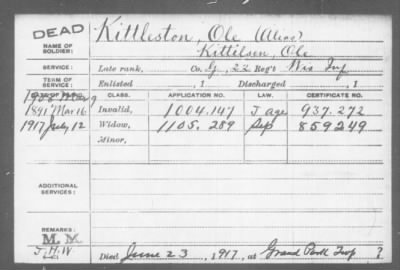 DEAD
Kittleston, Ole (Alias)
NAME OF SOLDIER:
Kittilsen, Ole
SERVICE: Late rank, Co. G, 22 Reg't Wis Inf
TERM OF SERVICE: Enlisted , 1 Discharged , 1
DATE OF FILING. CLASS. APPLICATION NO. LAW. CERTIFICATE NO.
1908 Mar 9
1891 Mar 16 Invalid, 1004.147 J age 937.272
1917 July 12 Widow, 1105.289 Sep 859249
Minor,
ADDITIONAL SERVICES:
REMARKS:
M. M.
Died June 23, 1917, at Grand Twp ?